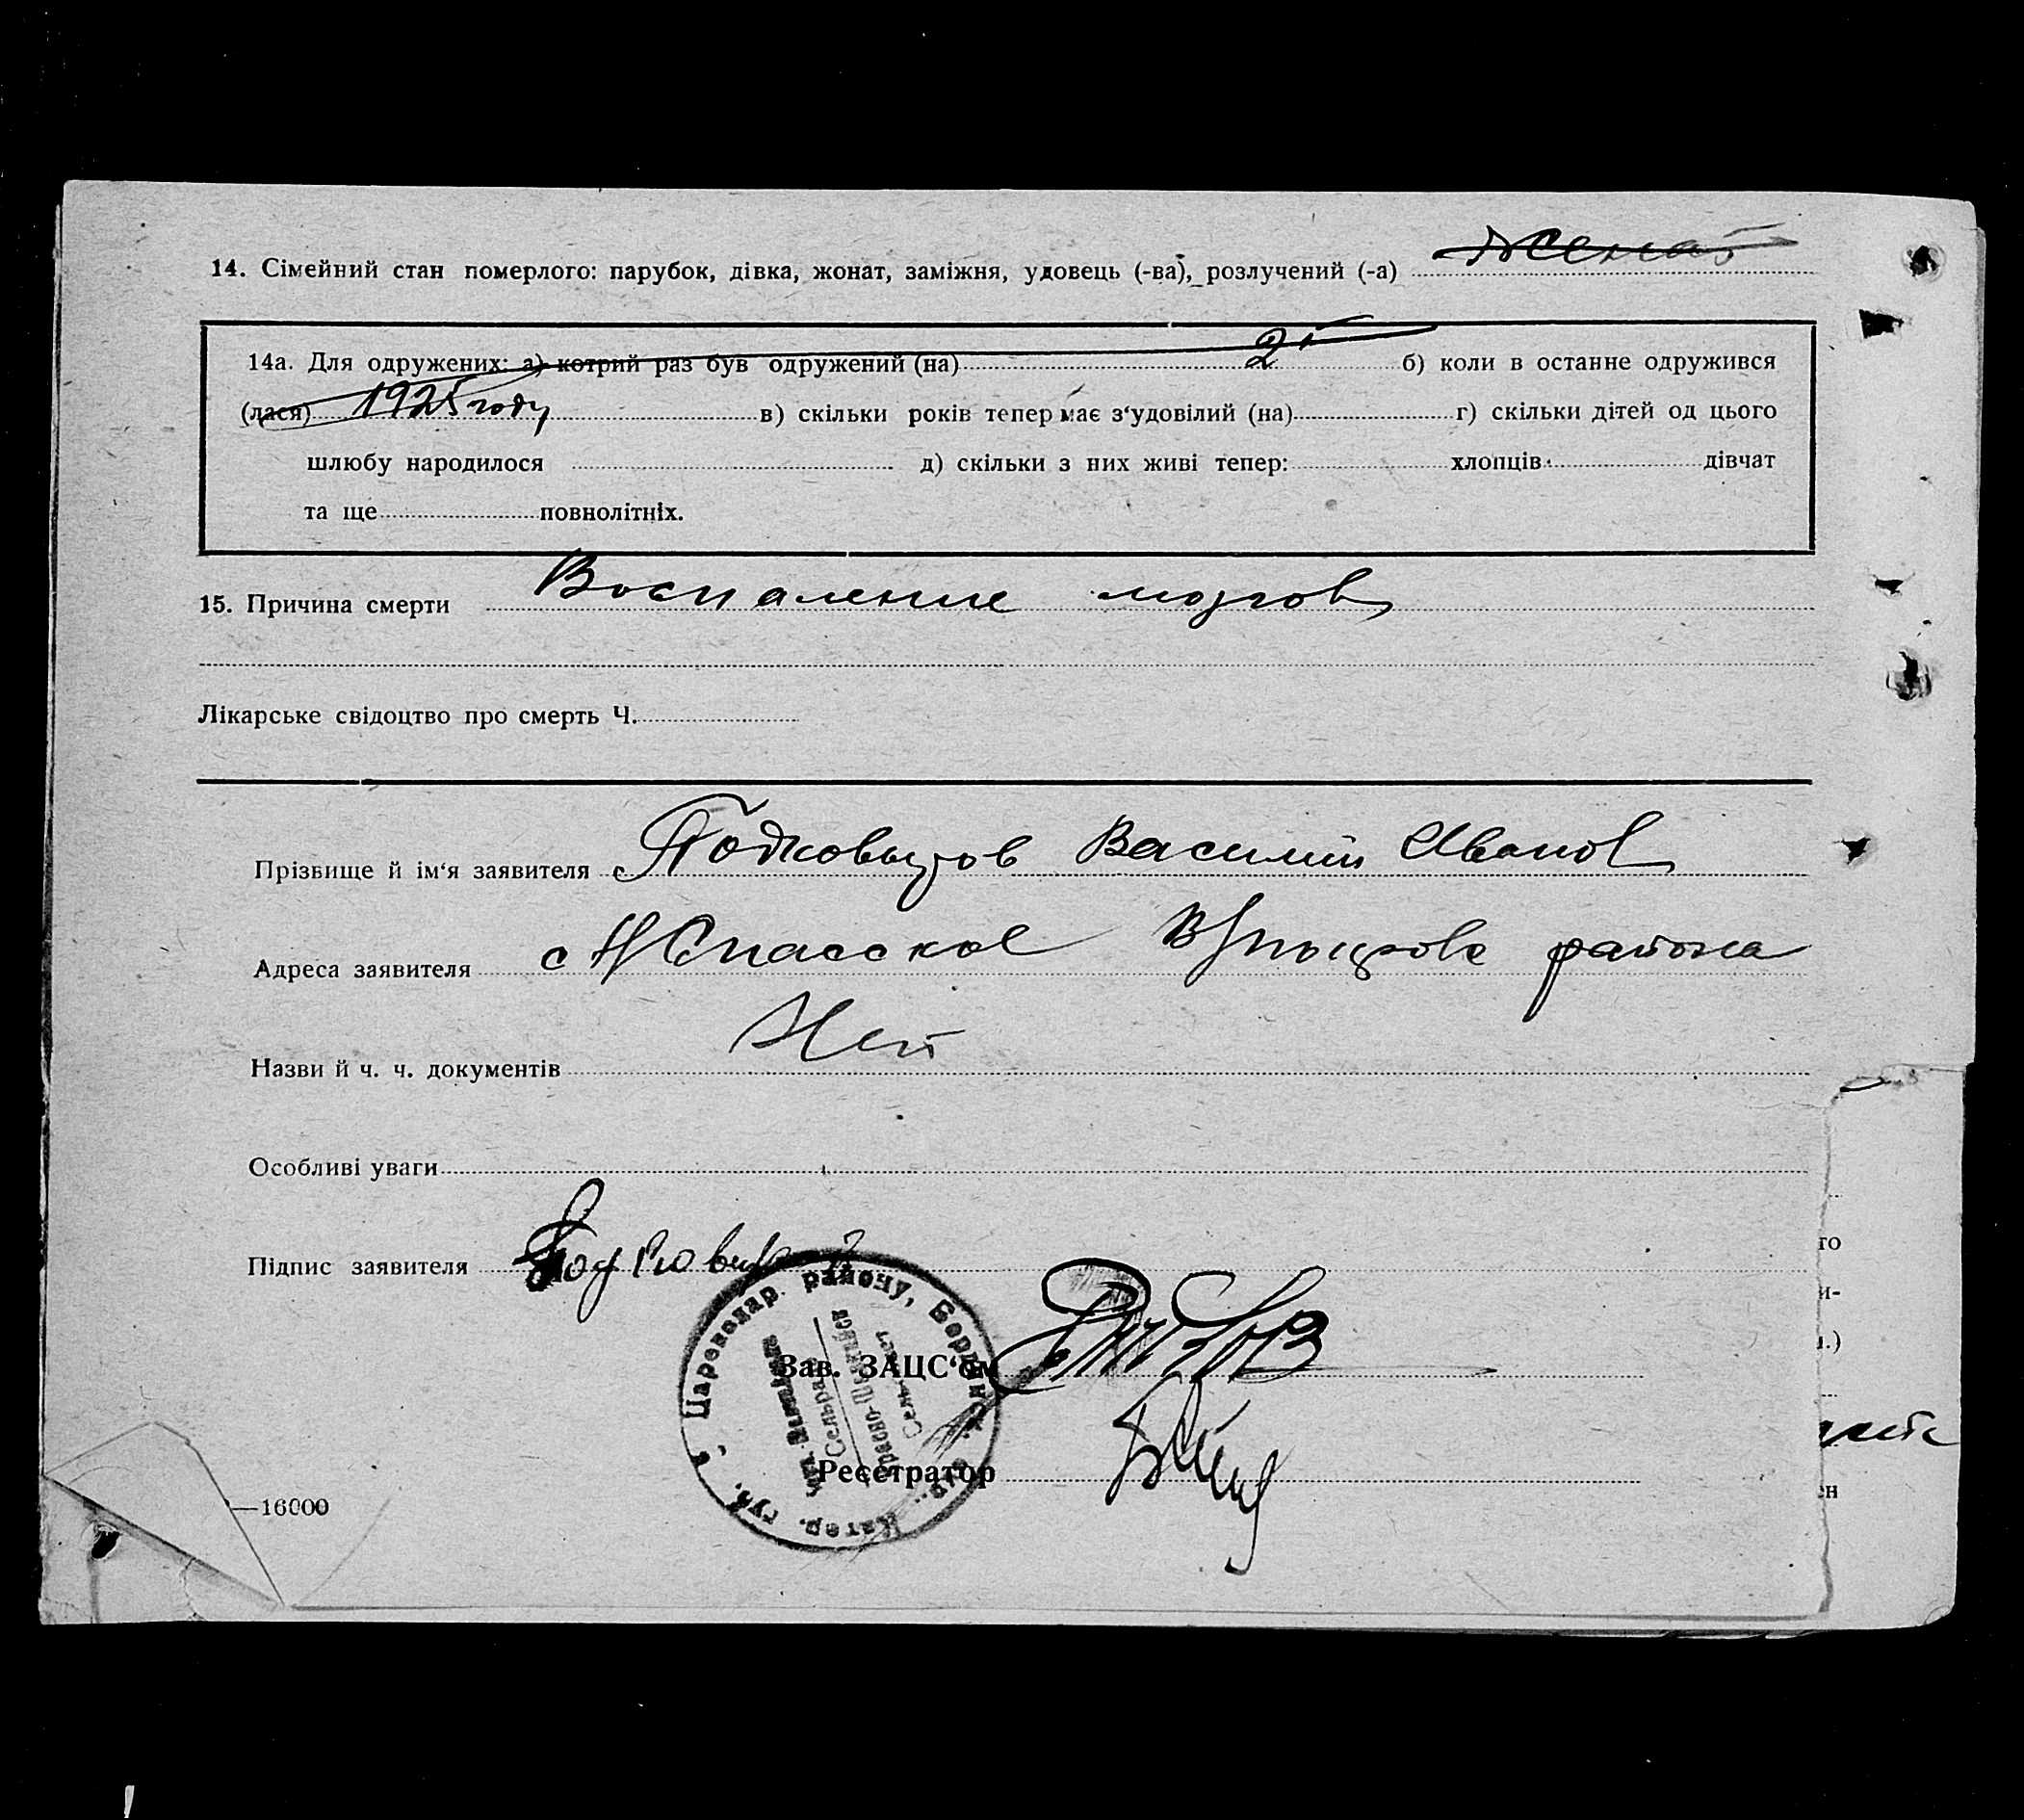 14. Сімейний стан померлого: парубок, дівка, жонат, заміжня, удовець (-ва), розлучений (-а) Женат
14а. Для одружених: а) котрий раз був одружений (на) 2й б) коли в останне одружився
(лася) 1925 году в) скільки років тепер має з‘удовілий (на) г) скільки дітей од цього
шлюбу народилося д) скільки з них живі тепер: хлопців дівчат
та ще повнолітніх.
15. Причина смерти Воспаление мозгов
Лікарське свідоцтво про смерть Ч.
Прізвище й ім‘я заявителя Подковыров Василий Иванов
Адреса заявителя с Н Спасское района
Назви й ч. ч. документів Нет
Особливі уваги
Підпис заявителя
Цареводар. району, Бердянс. окр. Катер. губ.
Зав. ЗАЦС‘ом
Сельрада
Реєстратор
—16000
то
и-
.)
ен